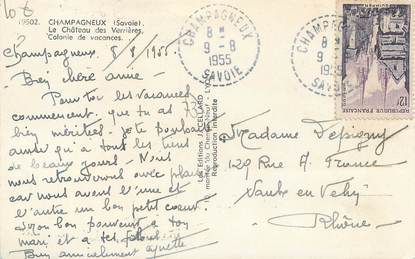 10 F
19502. CHAMPAGNEUX (Savoie).
Le Château des Verrières.
Colonie de vacances.
CHAMPAGNEUX
8 H
9 - 8
1955
SAVOIE
Champagneux 8/8/1955
Bien chère amie
Pour toi les vacances
commencent que tu as
bien méritées. je te souhaite
ainsi qu'à tous les tiens
de beaux jours. Nous
nous retrouverons avec plaisir
car nous avons l'une et
l'autre un bon petit coeur
bon souvenir à ton
mari et à tes
Bien amicalement
Les Editions J. CELLARD
Reproduction interdite
Madame Depigny
129 Rue A. France
Vaulx en Velin
Rhône
CHAMPAGNEUX
8 H
9
SAVOIE
12F
REPUBLIQUE FRANÇAISE